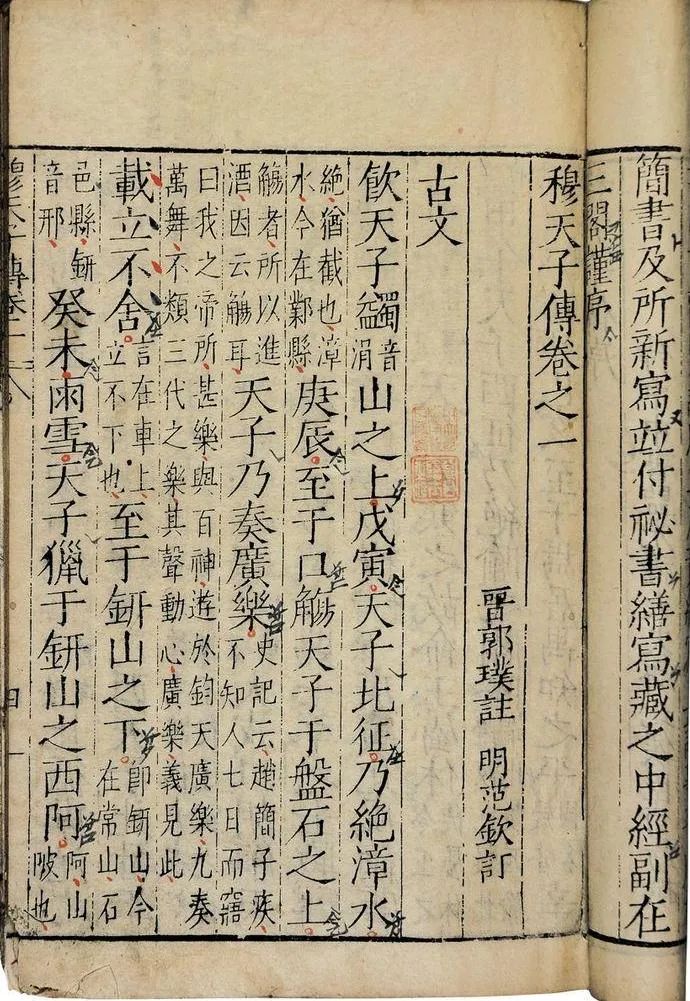 簡書及所新寫竝付祕書繕寫藏之中經副在
三閣謹序
穆天子傳卷之一
晉郭璞註 明范欽訂
古文
飲天子蠲音涓山之上戊寅天子北征乃絶漳水
絶猶截也漳水今在鄴縣庚辰至于口觴天子于盤石之上
觴者所以進酒因云觴耳天子乃奏廣樂史記云趙簡子疾不知人七日而寤
曰我之帝所甚樂與百神遊於鈞天廣樂九奏萬舞不類三代之樂其聲動心廣樂義見此
載立不舍言在車上立不下也至于鈃山之下即鈃山今在常山石
邑縣鈃音邢癸未雨雪天子獵于鈃山之西阿阿山陂也
穆天子傳卷一